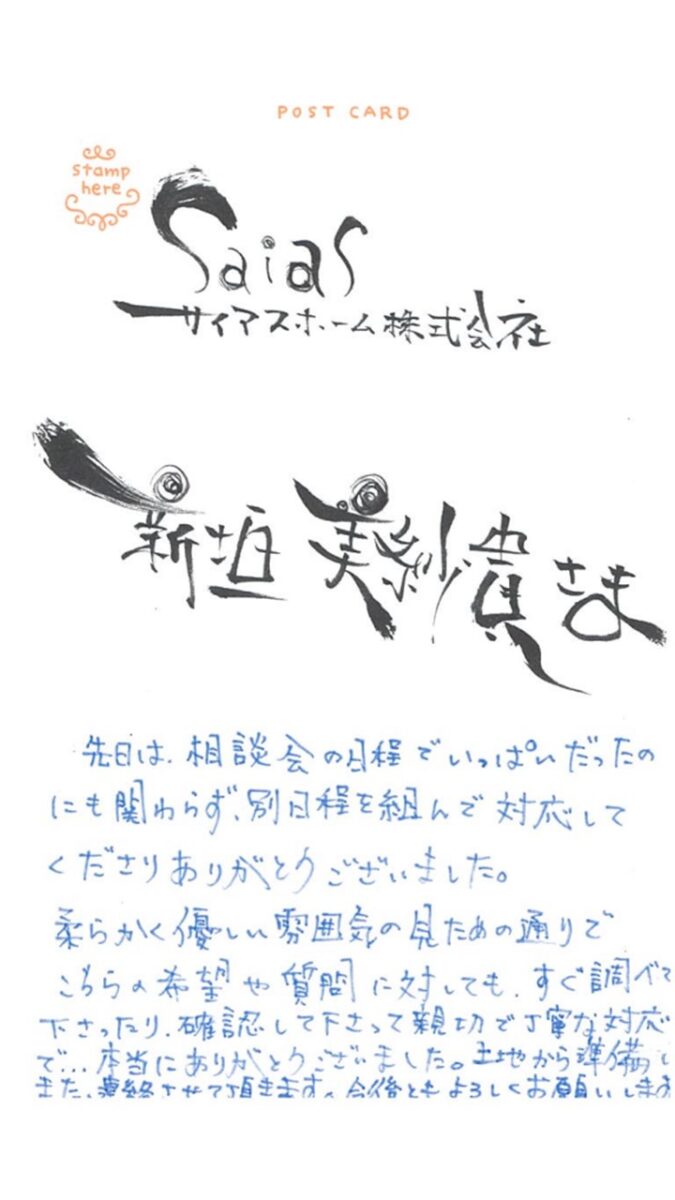 POST CARD
stamp
here
Saias
サイアスホーム株式会社
新垣 実紗貴さま
先日は、相談会の日程でいっぱいだったの
にも関わらず、別日程を組んで対応して
くださりありがとうございました。
柔らかく優しい雰囲気の見ための通りで
こちらの希望や質問に対しても、すぐ調べて
下さったり、確認して下さって親切で丁寧な対応
で…本当にありがとうございました。土地から準備し
また、連絡させて頂きます。今後ともよろしくお願いします